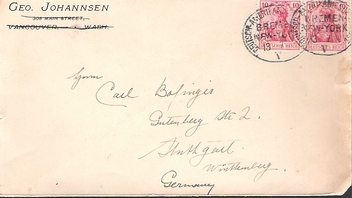 Geo. Johannsen
308 MAIN STREET,
VANCOUVER, WASH.
Herrn
Carl Bofinger
Gutenberg Str 2.
Stuttgart
Württemberg
Germany
10 10
BREMEN
NEW-YORK